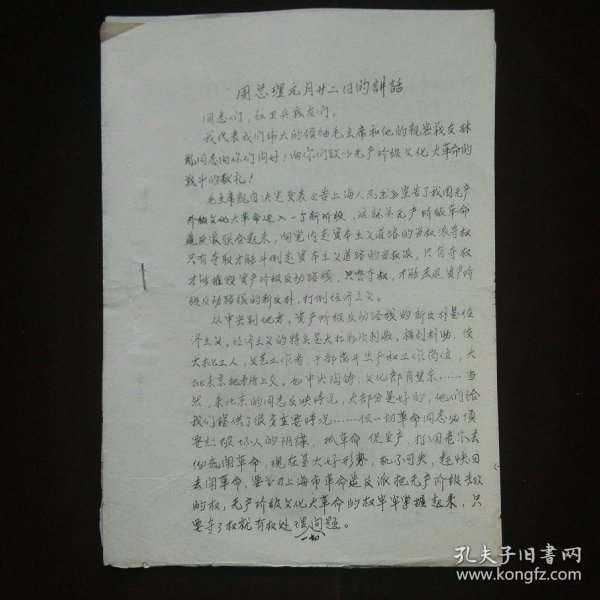 周总理元月廿二日的讲话
同志们，红卫兵战友们，
我代表我们伟大的领袖毛主席和他的亲密战友林
彪同志向你们问好！向你们致以无产阶级文化大革命的
战斗的敬礼！
毛主席亲自决定发表《告上海人民书》宣告了我国无产
阶级文化大革命进入一个新阶段，这就是无产阶级革命
造反派联合起来，向党内走资本主义道路的当权派夺权
只有夺取才能斗倒走资本主义道路的当权派，只有夺权
才能摧毁资产阶级反动路线，只有夺权，才能击退资产阶
级反动路线的新反扑，打倒经济主义。
从中央到地方，资产阶级反动路线的新反扑是经
济主义。经济主义的特点是大搞物质刺激，福利补助，使
大批工人，文艺工作者，干部离开生产和工作岗位，大
批来京地者待上交。如中央陶铸，文化部肖望东……当
然，来北京的同志反映情况，大部分是好的，他们给
我们提供了很多重要情况……但一切革命同志必须
要粉破坏人的阴谋，抓革命 促生产，打回老家去
彻底闹革命，现在是大好形势，机不可失，赶快回
去闹革命，要学习上海市革命造反派把无产阶级专政
的权，无产阶级文化大革命的权牢牢掌握起来，只
要夺了权就有权处理问题。
一切
孔夫子旧书网
www.kongfz.com